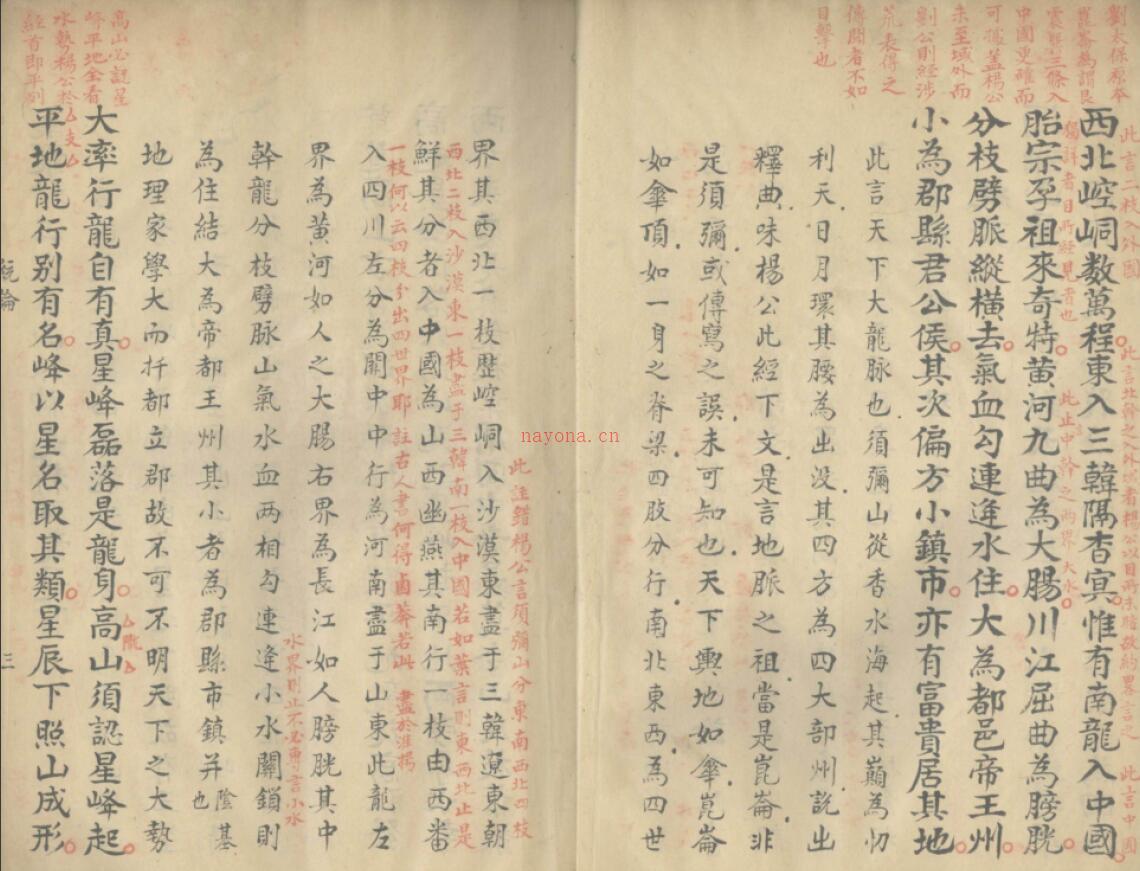 劉太保原本
崑崙為謂艮
震巽三條入
中國更確而
可據蓋楊公
未至域外而
劉公則經涉
荒表得之
傳聞者不如
目擊也
此言二枝入外國
此言北幹之入外域者楊公以目所未睹故約畧言之
此言中國
西北崆峒数萬程東入三韓隔杳㝠惟有南龍入中國
獨詳者目所經見者也
此止中幹之兩界大水
胎宗孕祖來奇特黄河九曲為大腸川江屈曲為膀胱
分枝劈脈縱橫去氣血勾連逢水住大為都邑帝王州
小為郡縣君公侯其次偏方小鎮市亦有富貴居其地
此言天下大龍脉也須彌山從香水海起其巔為忉
利天日月環其腰為出没其四方為四大部州説出
釋典味楊公此經下文是言地脈之祖當是崑崙非
是須彌或傳寫之誤未可知也天下輿地如傘崑崙
如傘頂如一身之脊梁四肢分行南北東西為四世
nayona.cn
此註錯楊公言須彌山分東南西北四枝
界其西北一枝歷崆峒入沙漠東盡于三韓遼東朝
西北二枝入沙漠東一枝盡于三韓南一枝入中國若如葉言則東西北止是
鮮其分者入中國為山西幽燕其南行一枝由西番
一枝何以云四枝分出四世界耶註古人書何得鹵莽若此
盡於淮揚
入四川左分為關中中行為河南盡于山東此龍左
界為黄河如人之大腸右界為長江如人膀胱其中
水界則止不必專言小水
幹龍分枝劈脉山氣水血两相勾連逢小水關鎖則
為住結大為帝都王州其小者為郡縣市鎮并陰基也
地理家學大而扦都立郡故不可不明天下之大勢
高山必認星
峰平地全看
水勢楊公於
經首即平列
大率行龍自有真星峰磊落是龍身高山須認星峰起
支
平地龍行别有名峰以星名取其類星辰下照山成形
三